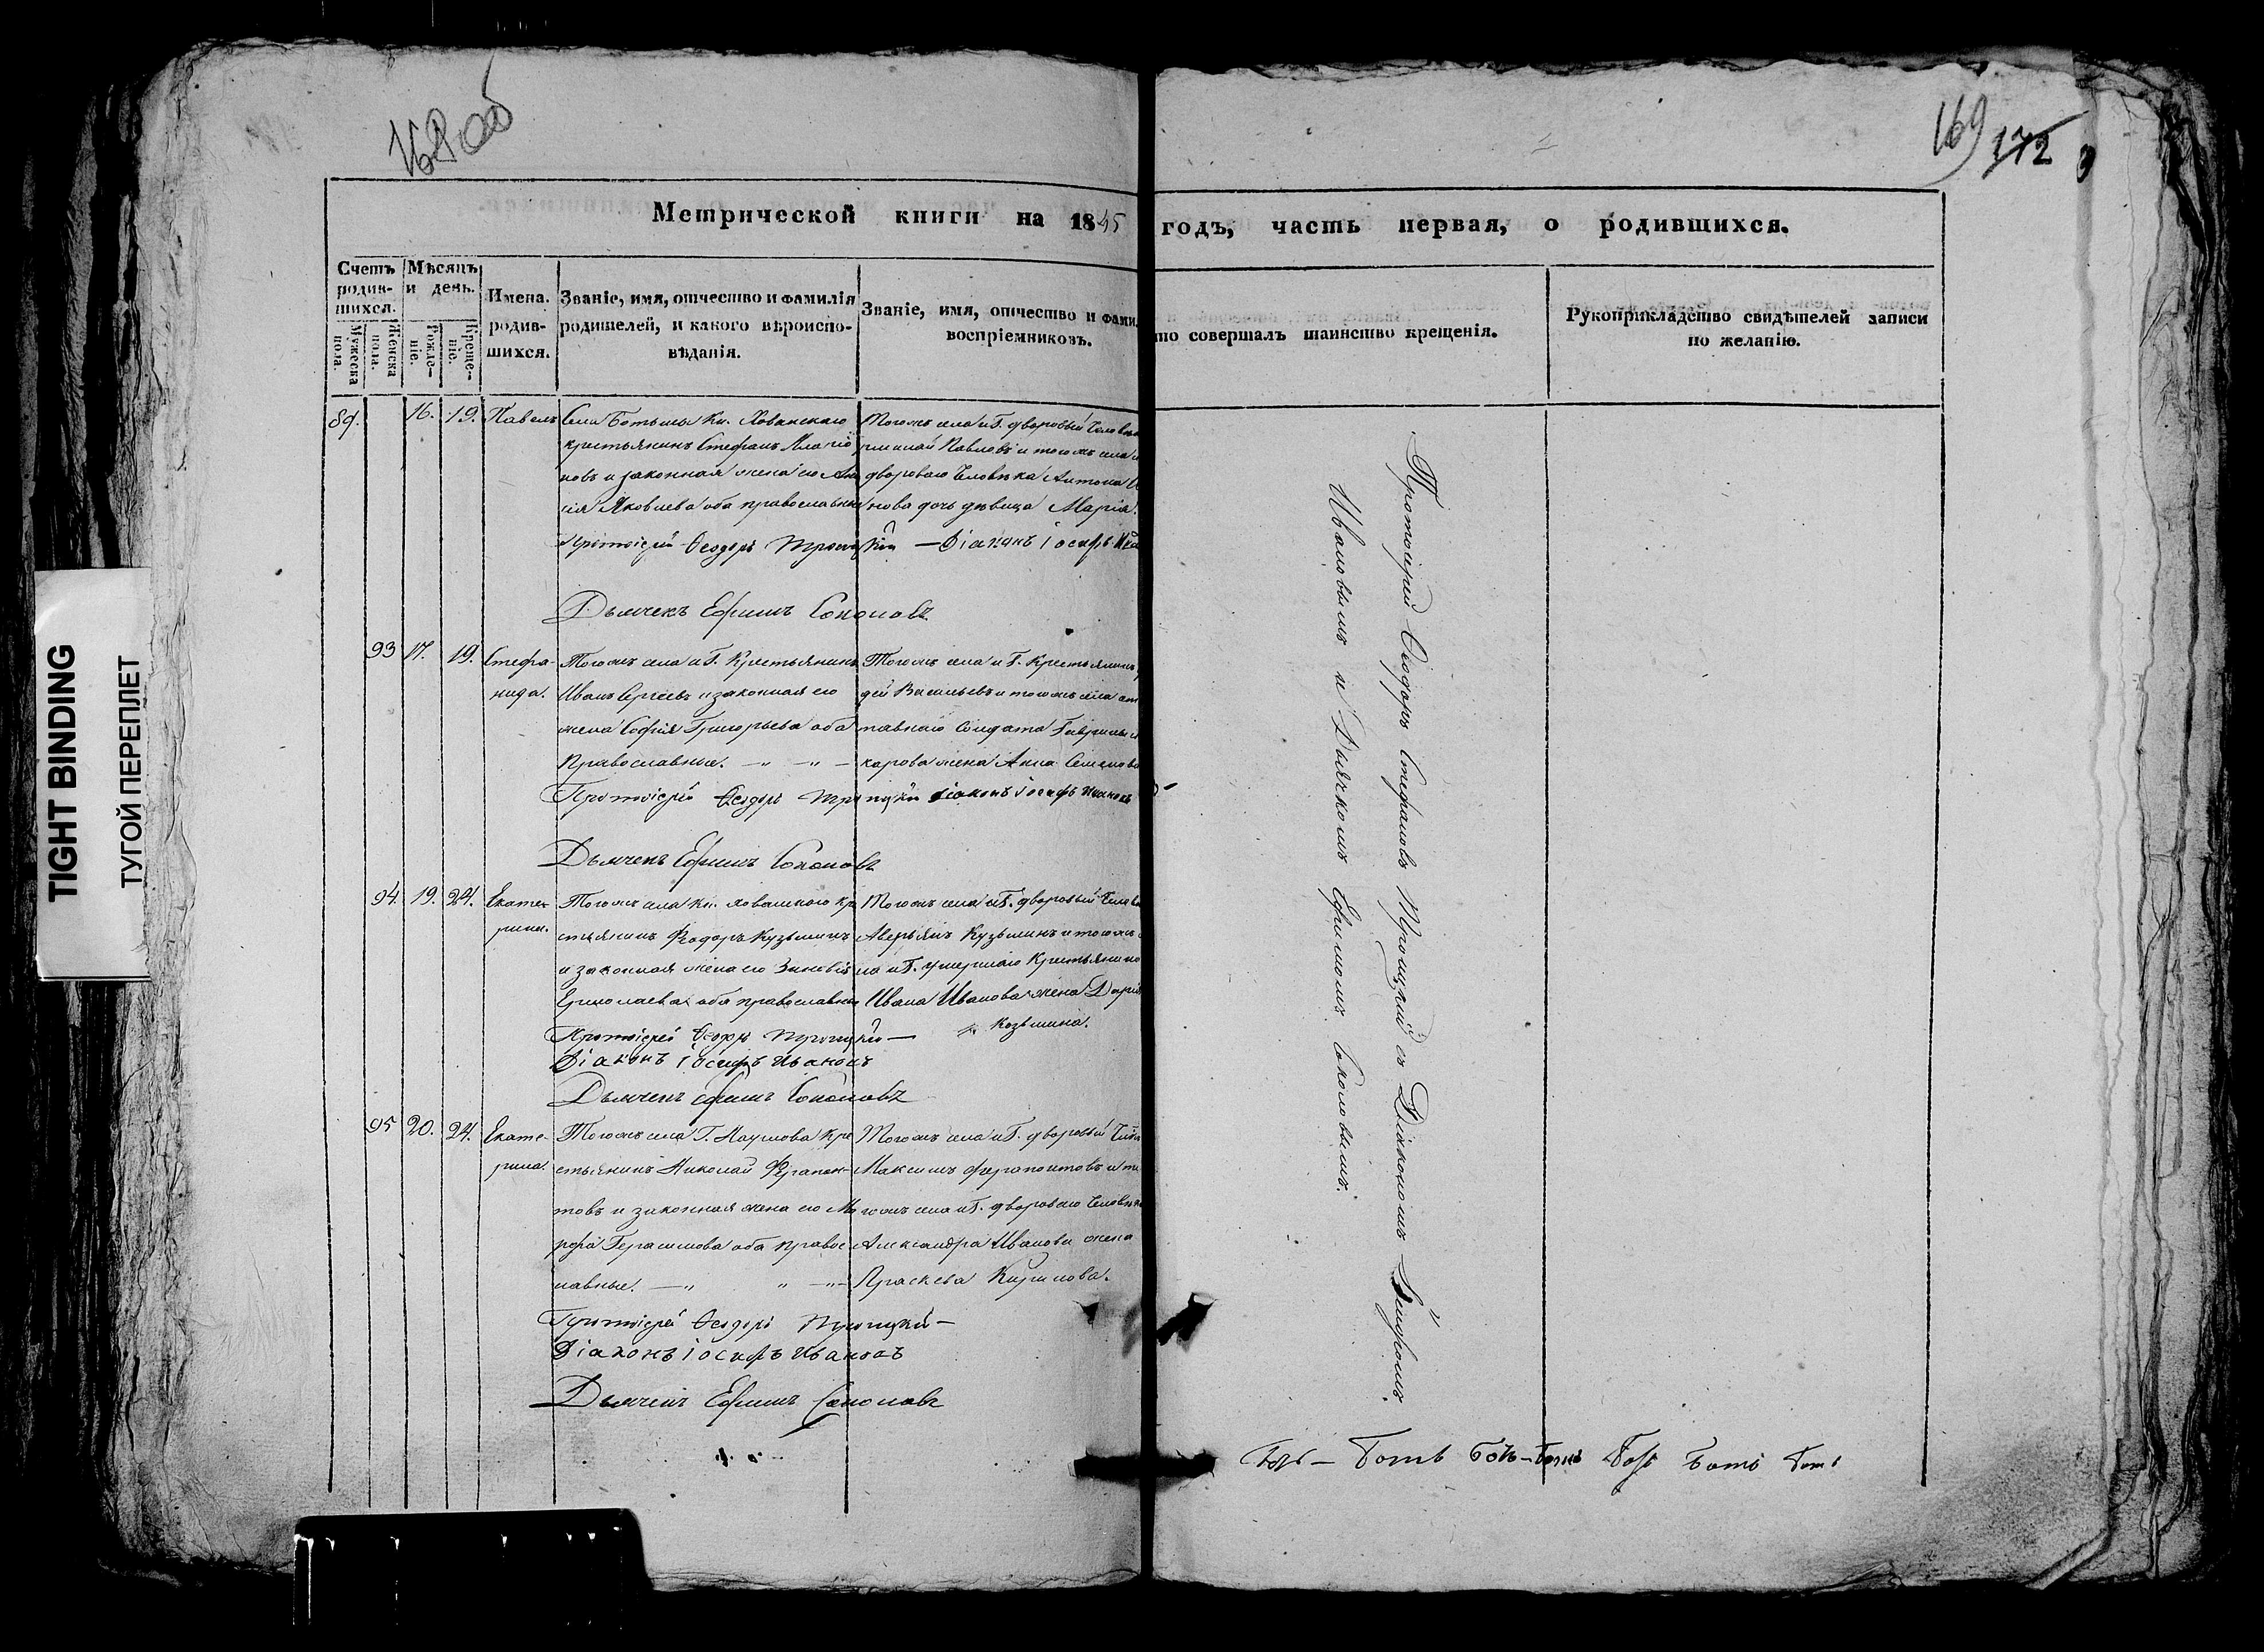 168 об
169
172
TIGHT BINDING
ТУГОЙ ПЕРЕПЛЕТ
Метрической книги на 1845 годъ, часть первая, о родившихся.
Счетъ родив-шихся.
Мужеска пола.
Женска пола.
Мѣсяцъ и день.
Рожде-ніе.
Креще-ніе.
Имена родив-шихся.
Званіе, имя, отчество и фамилія
родителей, и какого вѣроиспо-
вѣданія.
Званіе, имя, отчество и фами
воспріемниковъ.
то совершалъ таинство крещенія.
Рукоприкладство свидѣтелей записи
по желанію.
89. 16. 19. Павелъ
Села Ботьмы Кн. Хованскаго
крестьянинъ Стефанъ Иларіо
новъ и законная жена его Ана
сія Яковлева оба православные
Тогожъ села и Г. дворовый Человѣк
Павловъ и тогожъ села и
двороваго Человѣка Антона И
нова дочь дѣвица Марія.
Протоіерей Ѳеодоръ Троицкій — Діаконъ Іосифъ
Дьячекъ Ефимъ Соколовъ
93 17. 19. Стефа-
нида.
Тогожъ села и Г. Крестьянинъ
Иванъ Сергѣевъ и законная его
жена Софія Григорьева оба
Православные. — „ — „ —
Тогожъ села и Г. Крестьянинъ
дей Васильевъ и тогожъ села от
тавнаго Солдата Гаврилы
карова жена Анна Семенова
Протоіерей Ѳеодоръ Троицкій Діаконъ Іосифъ Ивановъ
Дьячекъ Ефимъ Соколовъ
94 19. 24. Екате-
рина.
Тогожъ села Кн. Хованскаго кре
стьянинъ Ѳеодоръ Кузьминъ
и законная жена его Зиновія
Ермолаева оба православные
Тогожъ села и Г. дворовый Челов
Аверьянъ Кузьминъ и тогожъ с
ла и Г. умершаго Крестьянина
Ивана Иванова жена Дарія
Козьмина.
Протоіерей Ѳеодоръ Троицкій —
Діаконъ Іосифъ Ивановъ
Дьячекъ Ефимъ Соколовъ
95 20. 24. Екате-
рина.
Тогожъ села Г. Наумова кре
стьянинъ Николай Ферапон-
товъ и законная жена его Ма
рфа Герасимова оба правос
лавные. — „ „ — „ —
Тогожъ села и Г. дворовый Челов
Максимъ Ферапонтовъ и то
гожъ села и Г. двороваго Человѣка
Александра Иванова жена
Праскева Кирилова.
Протоіерей Ѳеодоръ Троицкій —
Діаконъ Іосифъ Ивановъ
Дьячекъ Ефимъ Соколовъ
Протоіерей Ѳеодоръ Стефановъ Троицкій съ Діакономъ Іосифомъ
Ивановымъ и Дьячкомъ Ефимомъ Соколовымъ.